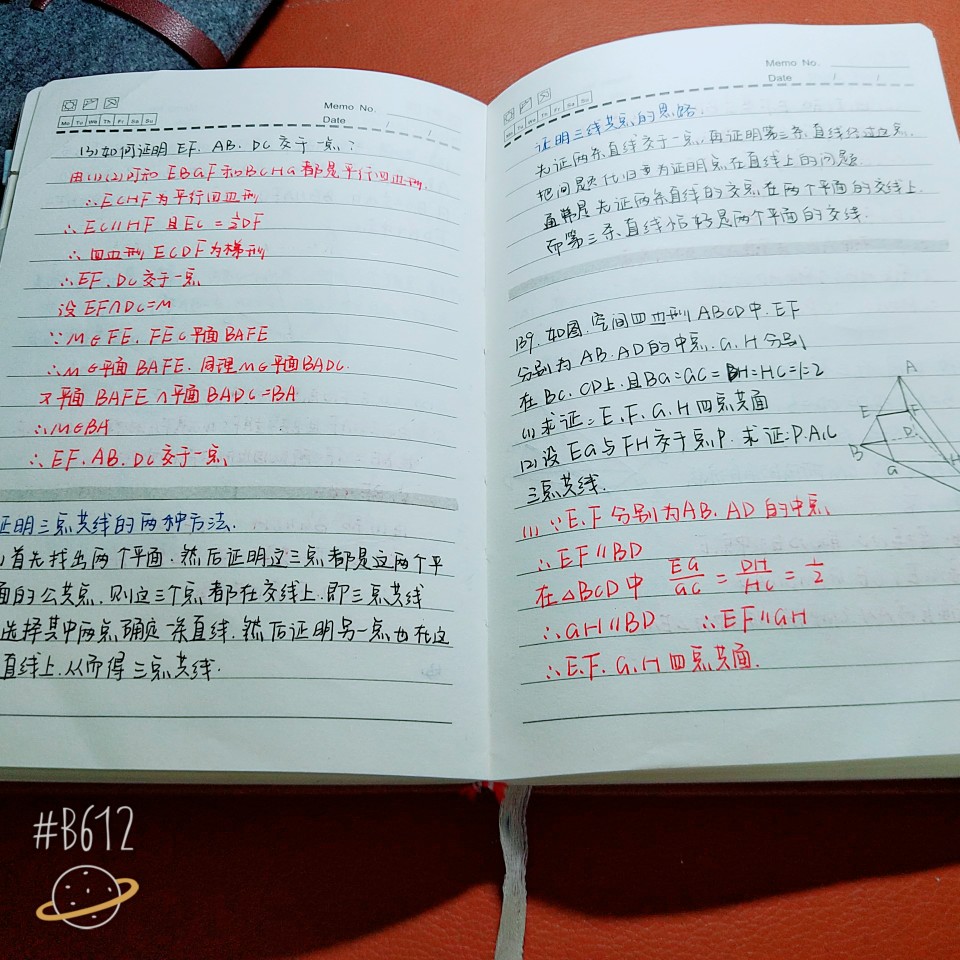 Memo No.
Mo Tu We Th Fr Sa Su
Date / /
(3)如何证明 EF. AB. DC 交于一点?
由(1)(2)可知 EBGF 和BCHG都是平行四边形.
∴ECHF为平行四边形
∴EC∥HF 且EC=½DF
∴四边形 ECDF为梯形
∴EF.DC交于一点
设 EF∩DC=M
∵M∈FE. FE⊂平面BAFE
∴M∈平面BAFE.同理M∈平面BADC.
又平面BAFE∩平面BADC=BA
∴M∈BA
∴EF.AB.DC交于一点
证明三点共线的两种方法.
首先找出两个平面.然后证明这三点都是这两个平
面的公共点.则这三个点都在交线上.即三点共线
选择其中两点确定一条直线.然后证明另一点也在这
直线上.从而得三点共线.
Memo No.
Mo Tu We Th Fr Sa Su
Date / /
证明三线共点的思路.
先证两条直线交于一点.再证明第三条直线经过这点.
把问题化归为证明点在直线上的问题.
通常是先证两条直线的交点在两个平面的交线上.
而第三条直线恰好是两个平面的交线.
139.如图.空间四边形ABCD中.EF
分别为AB.AD的中点.G.H分别
在BC.CD上.且BG:GC=DH:HC=1:2
(1)求证:E.F.G.H四点共面
(2)设EG与FH交于点P.求证:P.A.C
三点共线.
A
E
F
B
D
G
H
(1)∵E.F分别为AB.AD的中点
∴EF∥BD
在△BCD中 EG/GC=DH/HC=1/2
∴GH∥BD ∴EF∥GH
∴E.F.G.H四点共面.
#B612